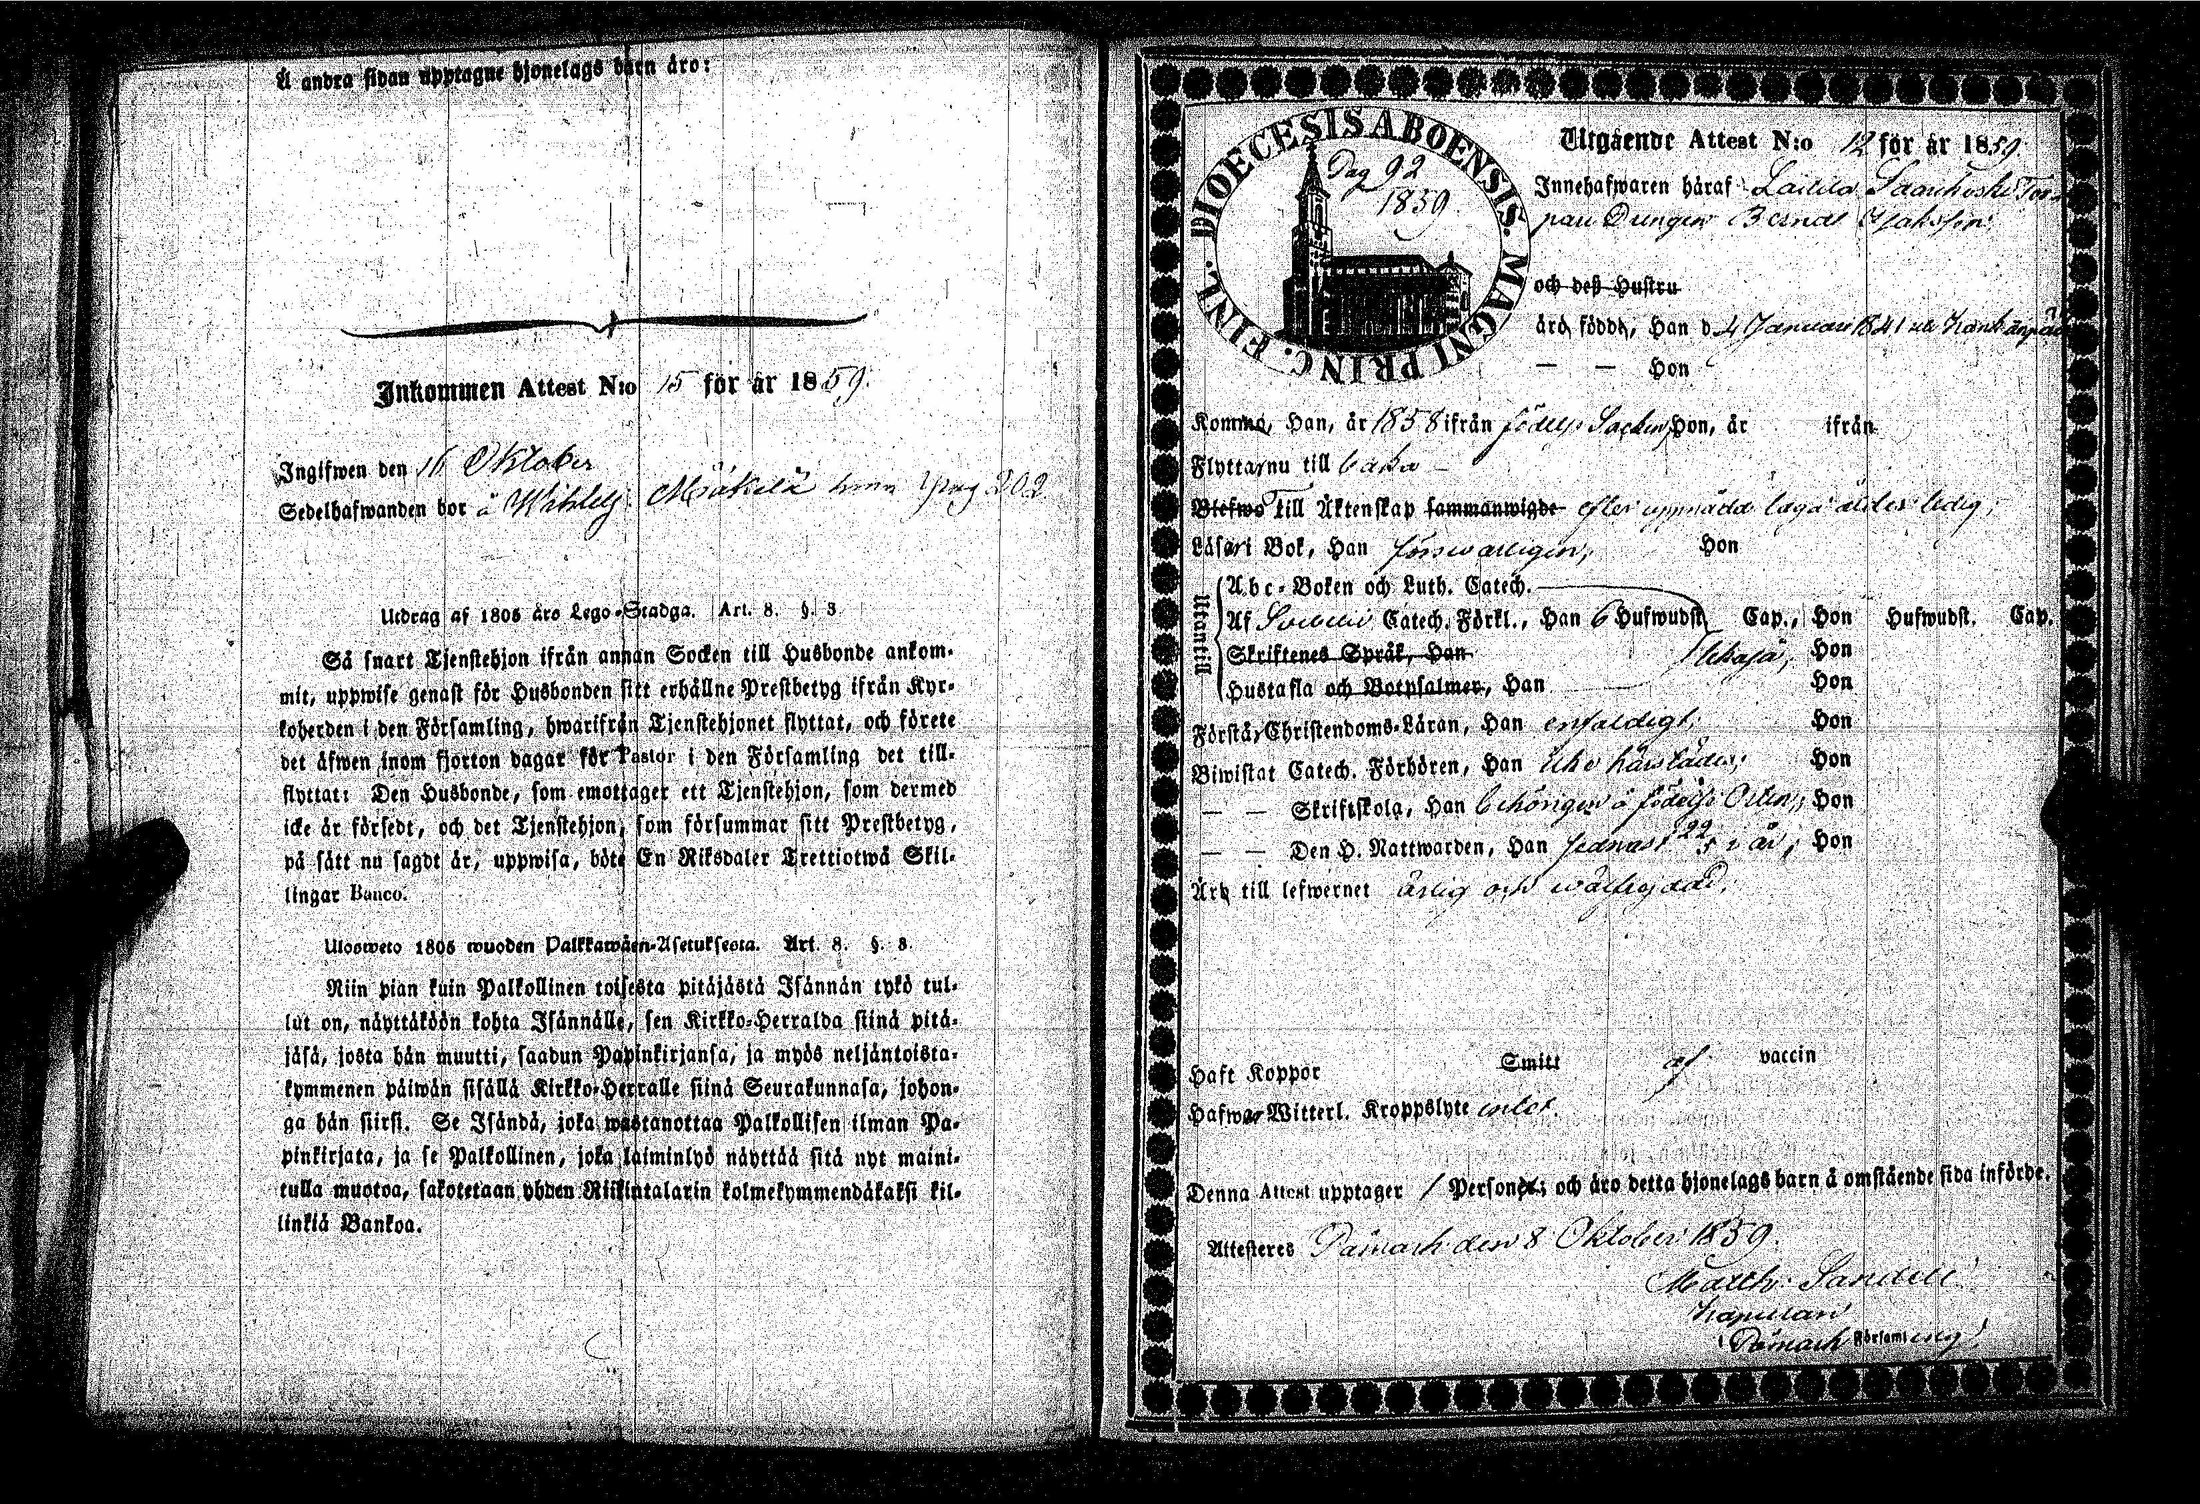 Å andra sidan upptagne hjonelags barn äro:
Inkommen Attest N:o 15 för år 1859.
Ingifwen den 16 Oktober
Sedelhafwanden bor å Mäkilä pag 202
Utdrag af 1805 års Lego-Stadga. Art. 8. §. 3.
Så snart Tjenstehjon ifrån annan Socken till Husbonde ankom-
mit, uppwise genast för Husbonden sitt erhållne Prestbetyg ifrån Kyr-
koherden i den Församling, hwarifrån Tjenstehjonet flyttat, och förete
det äfwen inom fjorton dagar för Pastor i den Församling det till-
flyttat: Den Husbonde, som emottager ett Tjenstehjon, som dermed
icke är försedt, och det Tjenstehjon, som försummar sitt Prestbetyg,
på sätt nu sagdt är, uppwisa, böte En Riksdaler Trettiotwå Skil-
lingar Banco.
Ulosweto 1805 wuoden Palkkawäen-Asetuksesta. Art. 8. §. 3.
Niin pian kuin Palkollinen toisesta pitäjästä Isännän tykö tul-
lut on, näyttäköön kohta Isännälle, sen Kirkko-Herralda siinä pitä-
jäsä, josta hän muutti, saadun Papinkirjansa, ja myös neljäntoista-
kymmenen päiwän sisällä Kirkko-Herralle siinä Seurakunnasa, johon-
ga hän siirsi. Se Isändä, joka wastanottaa Palkollisen ilman Pa-
pinkirjata, ja se Palkollinen, joka laiminlyö näyttää sitä nyt maini-
tulla muotoa, sakotetaan yhden Riikintalarin kolmekymmendäkaksi kil-
linkiä Bankoa.
DIOECESIS ABOENSIS. MAGNI PRINC. FINL.
Pag 92
1859
Utgående Attest N:o 12 för år 1859.
Innehafwaren häraf Laitila Tor-
pare Drengen Berndt Isaksson
och deß Hustru
äro födde, Han d. 4 Januari 1841 uti
— — Hon
Komne, Han, år 1858 ifrån födelse Socken, Hon, år ifrån
Flytta nu till baka
Blefwo Till Äktenskap sammanwigde efter uppnådd laga ålder ledig,
Läsa i Bok, Han försvarligen, Hon
Utantill
Abc-Boken och Luth. Catech.
Af Svebelii Catech. Förkl., Han 6 Hufwudst. Cap., Hon Hufwudst. Cap.
Skriftenes Språk, Han Hon
Hustafla och Botpsalmer, Han Hon
Förstå Christendoms-Läran, Han enfaldigt, Hon
Biwistat Catech. Förhören, Han icke härstädes, Hon
— — Skriftskola, Han behörigen å födelse Orten, Hon
— — Den H. Nattwarden, Han senast 22/5 i år, Hon
Äro till lefwernet ärlig och wälfrejdad.
Haft Koppor Smitt af vaccin
Hafwa Witterl. Kroppslyte intet.
Denna Attest upptager 1 Person; och äro detta hjonelags barn å omstående sida införde.
Attesteres Påmark den 8 Oktober 1859.
Matth. Sandell
Kapellan
i Påmark Församling